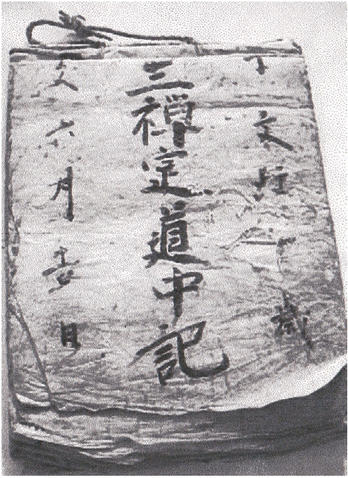 文政十歳
三禅定道中記
六月 日